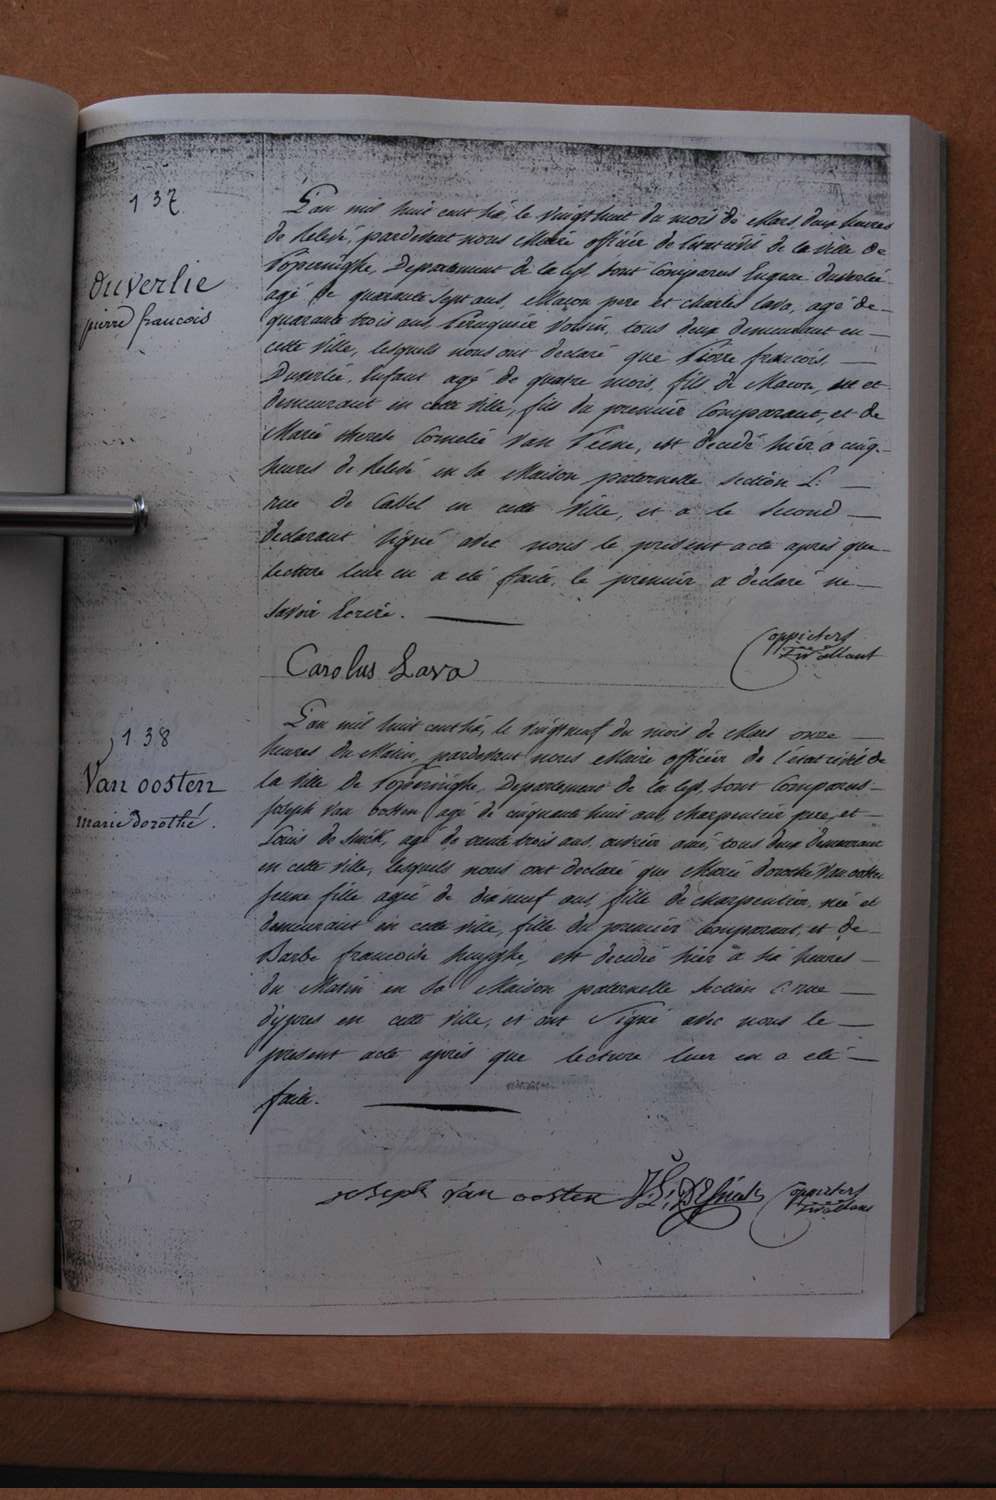 137
Duverlie
pierre francois
L'an mil huit cent dix, le vingthuit du mois de Mars deux heures
de Relevé, pardevant nous Maire officier de l'état civil de la ville de
Poperinghe, Departement de la Lys, sont Comparus Eugene Duverlié
agé de quarante sept ans, Maçon, pere et Charles Lava, agé de
quarante trois ans, Perruquier voisin, tous deux demeurant en
cette ville, lesquels nous ont declaré que Pierre francois,
Duverlié, Enfant agé de quatre mois, fils de Macon, né et
demeurant en cette ville, fils du premier Comparant, et de
Marie therese Cornelie Van, est decedé hier a cinq
heures de Relevé en sa Maison paternelle section L:
rue de Cassel en cette ville, et a le second
declarant signé avec nous le present acte apres que
lecture leur en a eté faite, le premier a declaré ne
savoir Ecrire.
Carolus Lava
138
Van oosten
marie Dorothé.
L'an mil huit cent dix, le vingtneuf du mois de Mars onze
heures du Matin, pardevant nous Maire officier de l'état civil de
la ville de Poperinghe, Departement de la Lys, sont Comparus
Joseph Van oosten agé de cinquante huit ans, charpentier pere, et
Louis de Smidt, agé de trente trois ans, ouvrier ami, tous deux demeurant
en cette ville, lesquels nous ont declaré que Marie dorothé Van oosten
jeune fille agée de dixneuf ans, fille de charpentier, née et
demeurant en cette ville, fille du premier Comparant, et de
Barbe francoise huyghe, est decedée hier à six heures
du Matin en sa Maison paternelle section C: rue
d'ypres en cette ville, et ont signé avec nous le
present acte après que lecture leur en a eté
faite.
joseph van oosten